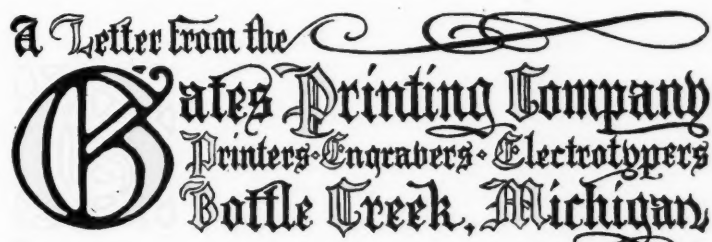 A Letter from the
Gates Printing Company
Printers·Engravers·Electrotypers
Bottle Creek, Michigan